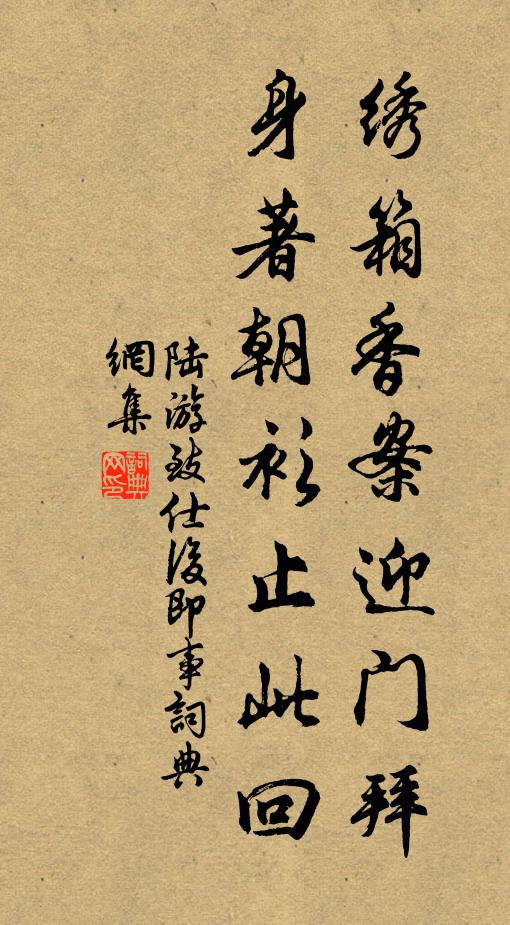 绣箱香案迎门拜
身著朝衫止此回
陆游致仕后即事词典
網集
詞典網印